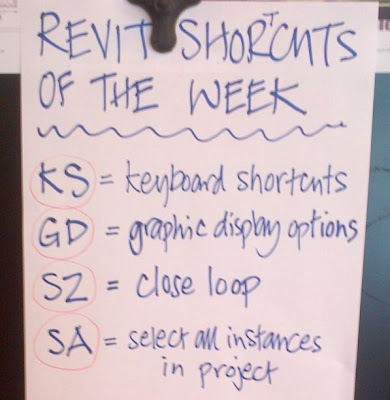 REVIT SHORTCUTS
OF THE WEEK
KS = keyboard shortcuts
GD = graphic display options
SZ = close loop
SA = select all instances
in project